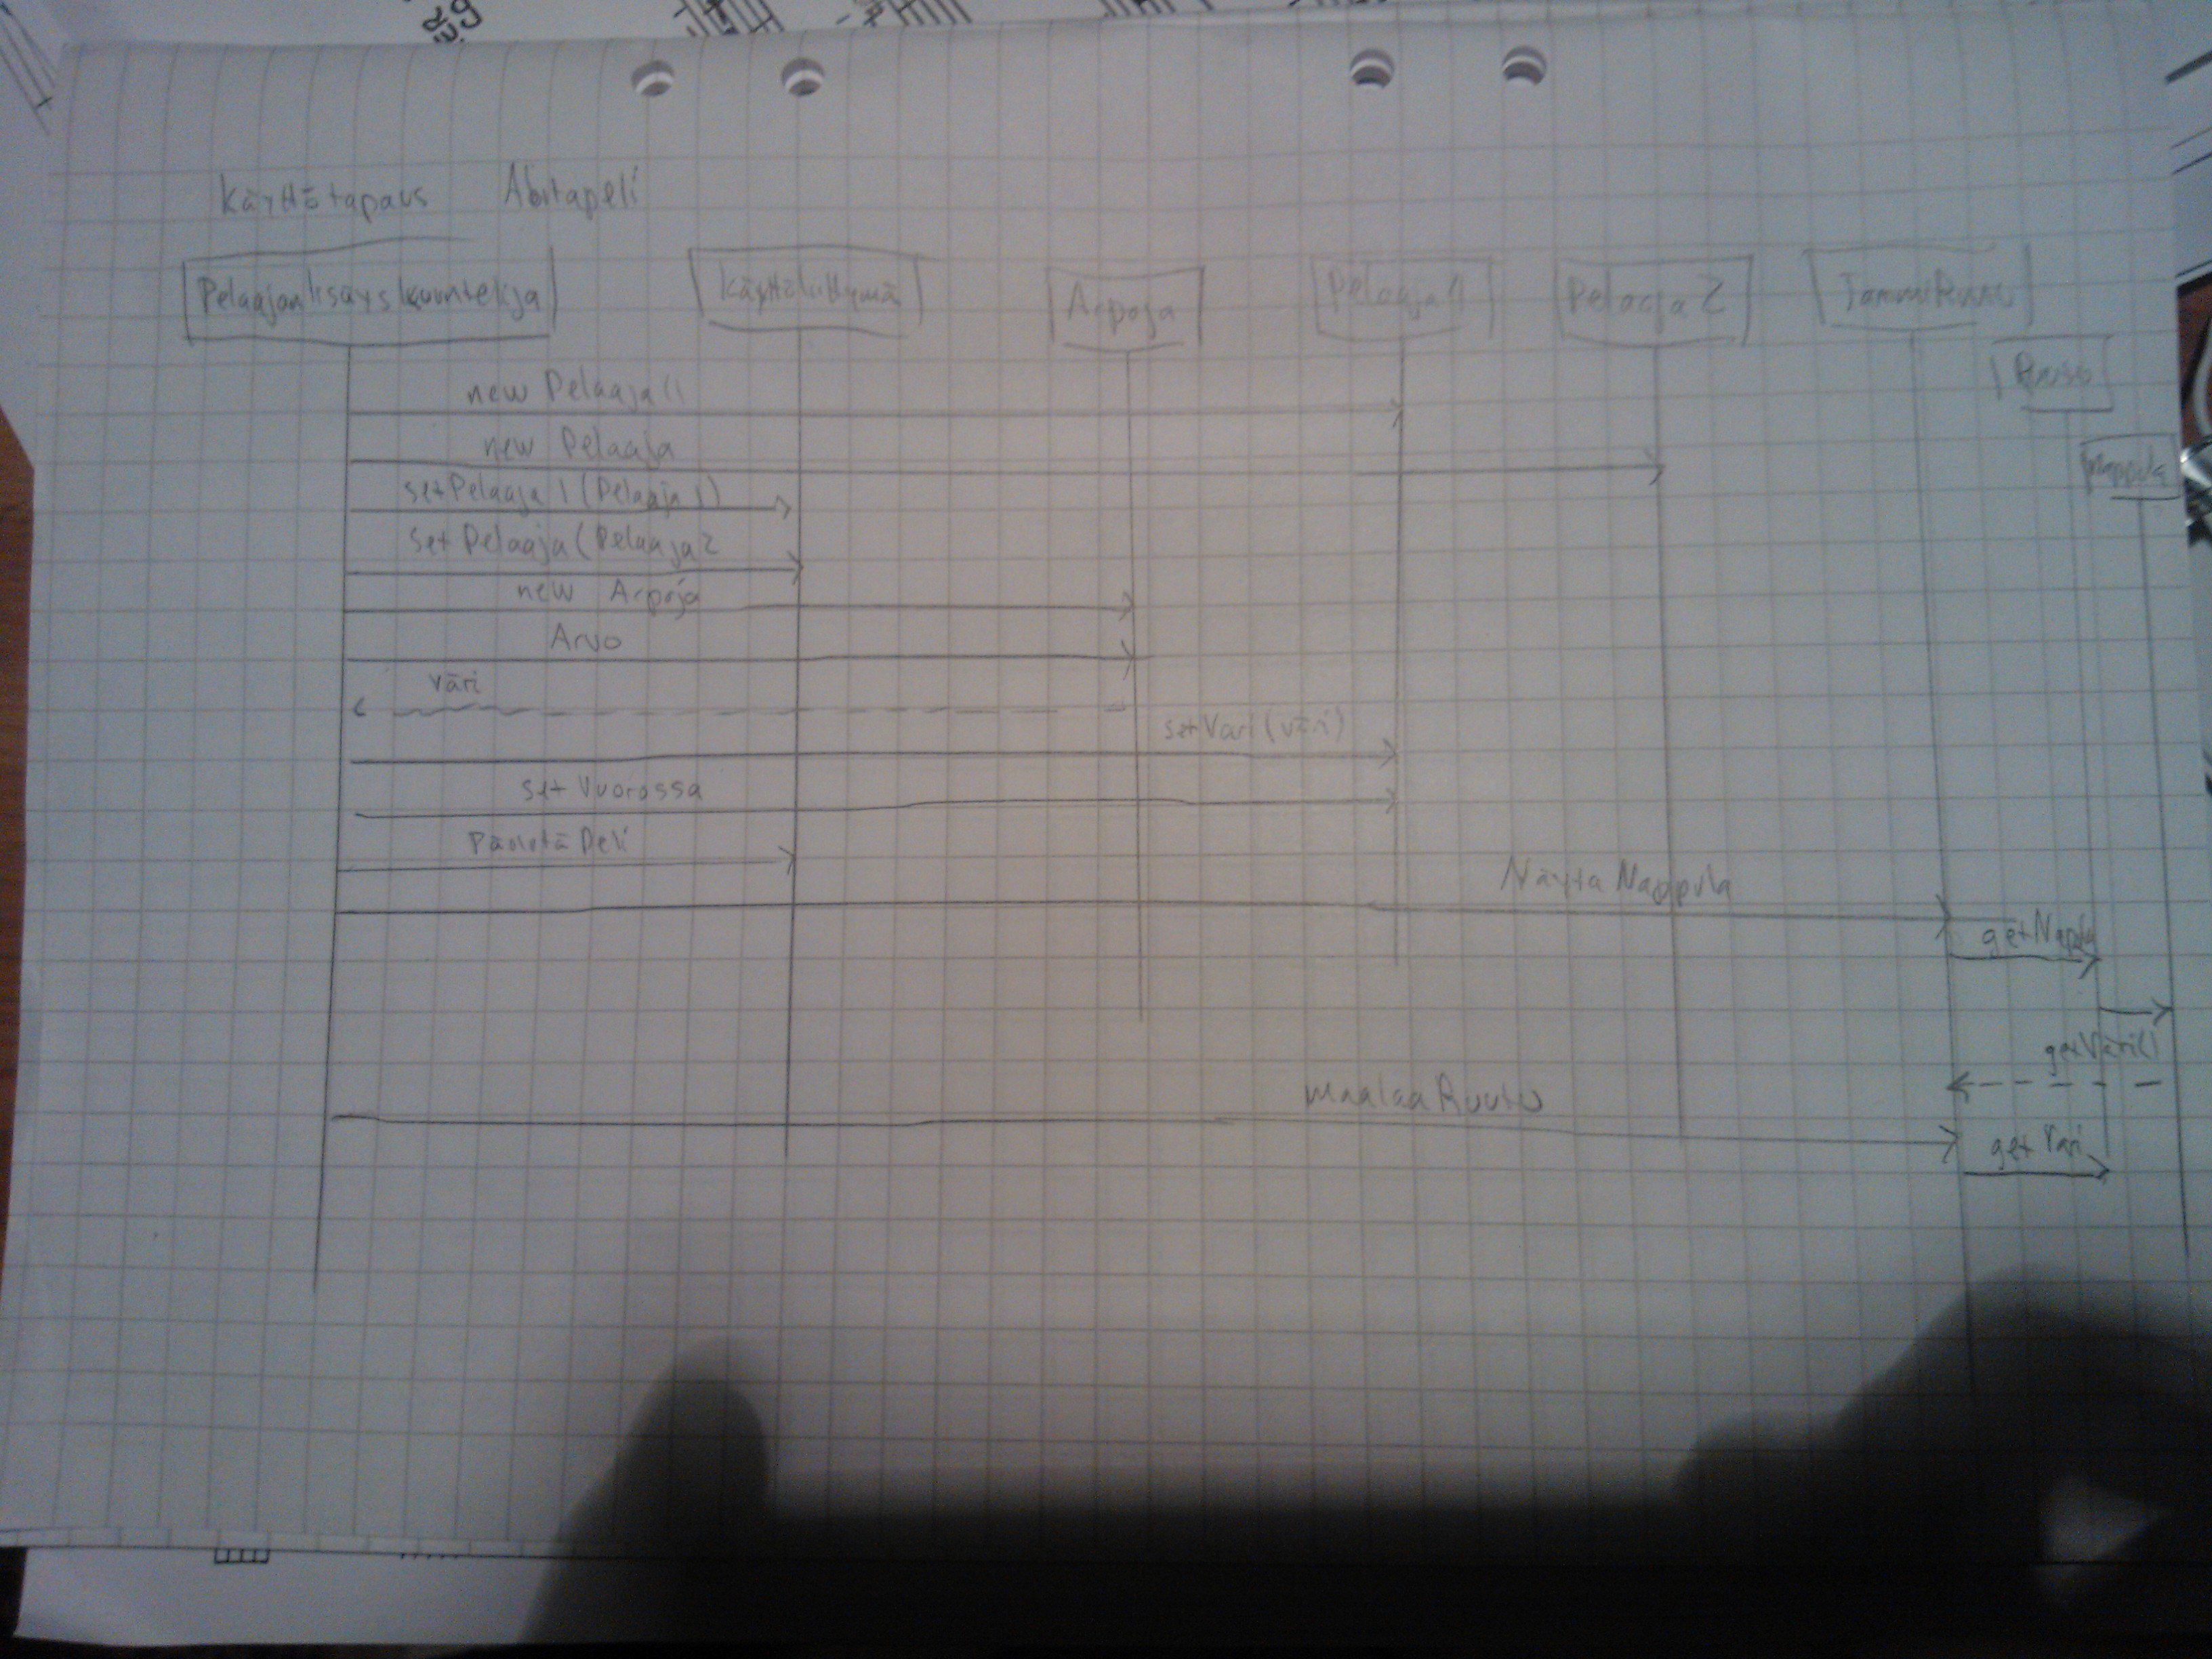 Käyttötapaus Aloitapeli
Pelaajanlisäyskuuntelija
Käyttöliittymä
Arpoja
Pelaaja 1
Pelaaja 2
Nappula
new Pelaaja()
new Pelaaja
setPelaaja1(Pelaaja1)
setPelaaja(Pelaaja2
new Arpoja
Arvo
väri
setVari(väri)
setVuorossa
PäivitäPeli
NäytäNappula
getNappula
getVäri()
maalaaRuutu
getVari